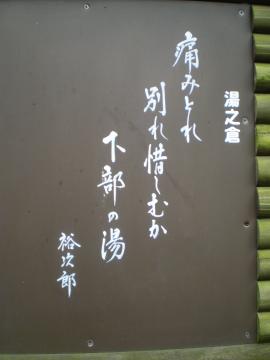 湯之倉
痛みとれ
別れ惜しむか
下部の湯
裕次郎